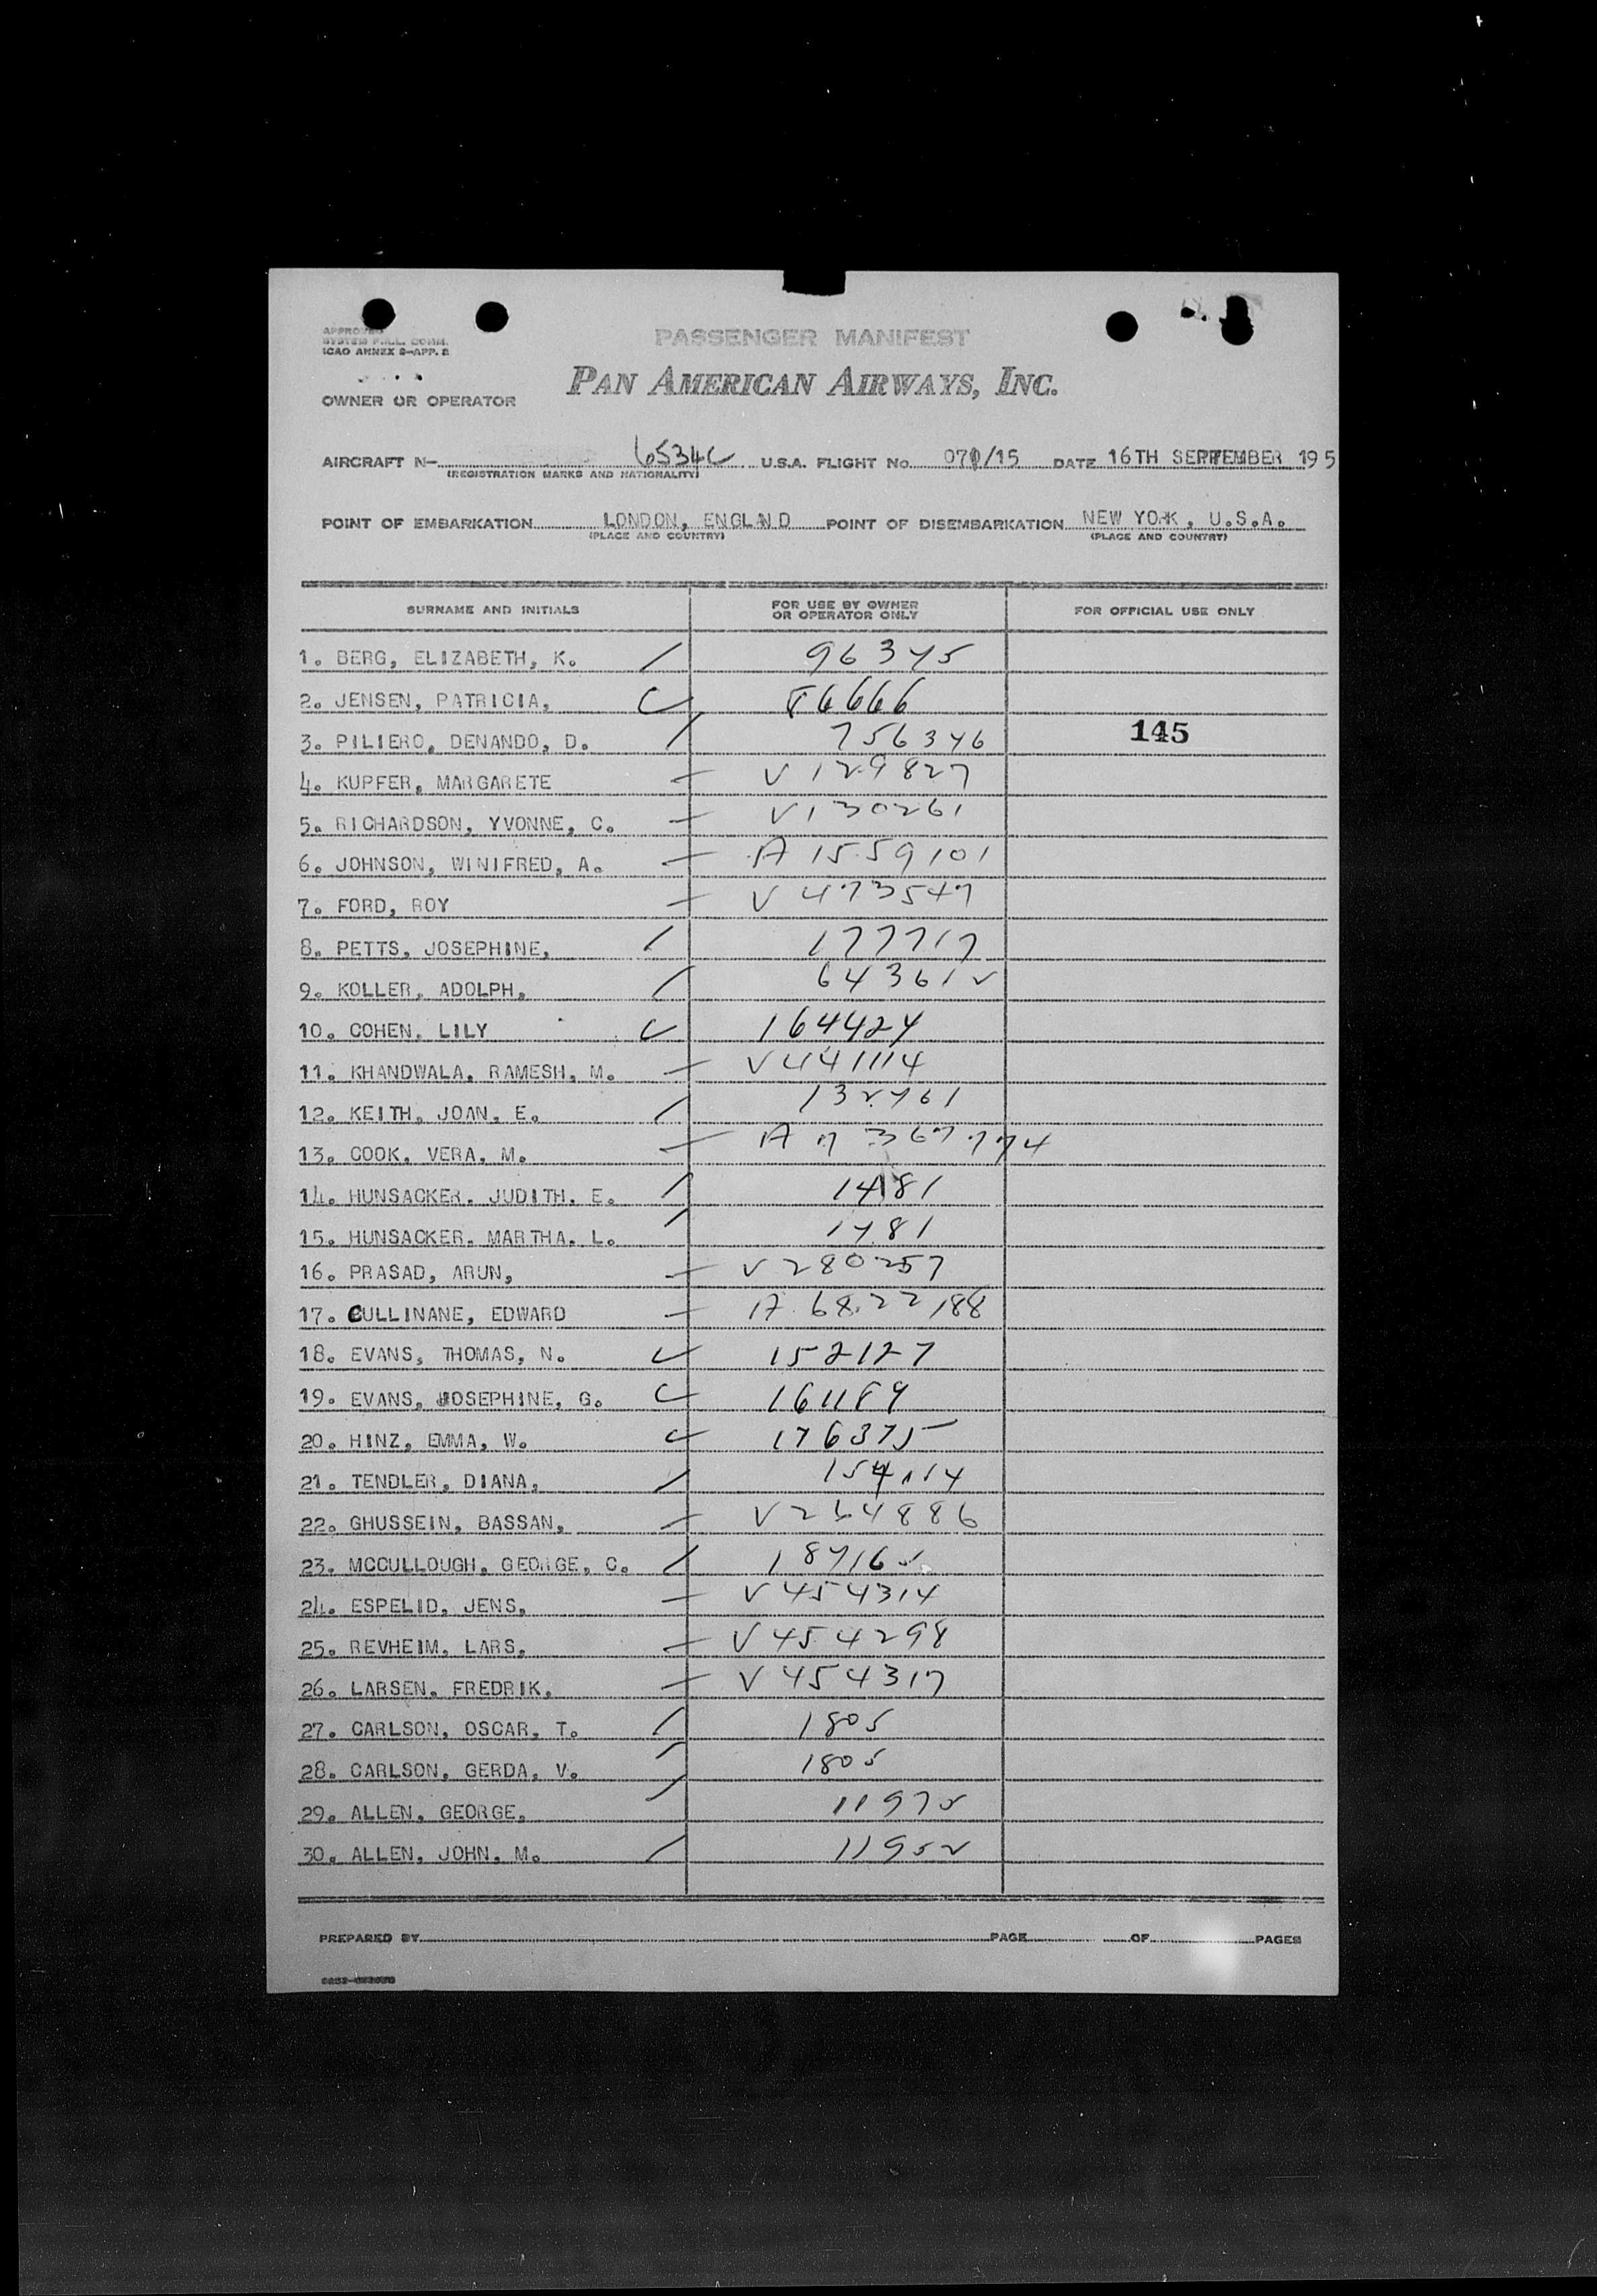 APPROVED
SYSTEM F.A.L. COMM.
ICAO ANNEX 9-APP. 2
PASSENGER MANIFEST
PAN AMERICAN AIRWAYS, INC.
OWNER OR OPERATOR
AIRCRAFT N- 6534C U.S.A. FLIGHT NO. 071/15 DATE 16TH SEPTEMBER 195
(REGISTRATION MARKS AND NATIONALITY)
POINT OF EMBARKATION LONDON, ENGLAND POINT OF DISEMBARKATION NEW YORK, U.S.A.
(PLACE AND COUNTRY) (PLACE AND COUNTRY)
SURNAME AND INITIALS FOR USE BY OWNER OR OPERATOR ONLY FOR OFFICIAL USE ONLY
1. BERG, ELIZABETH, K. 96345
2. JENSEN, PATRICIA,
3. PILIERO, DENANDO, D. 756346 145
4. KUPFER, MARGARETE V129827
5. RICHARDSON, YVONNE, C. V130261
6. JOHNSON, WINIFRED, A. A 1559101
7. FORD, ROY V 473547
8. PETTS, JOSEPHINE, 177717
9. KOLLER, ADOLPH, 643612
10. COHEN, LILY 164424
11. KHANDWALA, RAMESH, M. V441114
12. KEITH, JOAN, E. 132461
13. COOK, VERA, M. A 7 367 774
14. HUNSACKER, JUDITH, E. 1481
15. HUNSACKER, MARTHA, L. 1481
16. PRASAD, ARUN, V280257
17. CULLINANE, EDWARD A 6822188
18. EVANS, THOMAS, N. 152127
19. EVANS, JOSEPHINE, G. 161189
20. HINZ, EMMA, W. 176375
21. TENDLER, DIANA, 154114
22. GHUSSEIN, BASSAN,
23. MCCULLOUGH, GEORGE, C. 187162
24. ESPELID, JENS, V454314
25. REVHEIM, LARS, V454298
26. LARSEN, FREDRIK, V454317
27. CARLSON, OSCAR, T. 1805
28. CARLSON, GERDA, V. 1805
29. ALLEN, GEORGE, 11972
30. ALLEN, JOHN, M. 11952
PREPARED BY PAGE OF PAGES